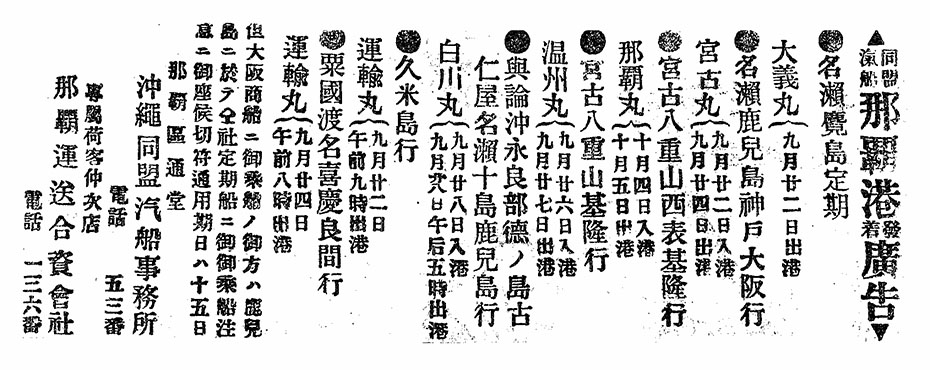 ▲同盟汽船那覇港發着廣告▼
●名瀨覽島定期
大義丸(九月廿二日出港
●名瀨鹿兒島神戸大阪行
宮古丸(九月廿二日入港
九月廿四日出港
●宮古八重山西表基隆行
那覇丸(十月四日入港
十月五日出港
●宮古八重山基隆行
温州丸(九月廿六日入港
九月廿七日出港
●與論沖永良部德ノ島古
仁屋名瀨十島鹿兒島行
白川丸(九月廿八日入港
九月廿八日午后五時出港
●久米島行
運輸丸(九月廿二日
午前九時出港
●粟國渡名喜慶良間行
運輸丸(九月廿四日
午前八時出港
但大阪商船ニ御乘船ノ御方ハ鹿兒
島ニ於テ仝社定期船ニ御御乘船注
意ニ御座候切符通用期日ハ十五日
那覇區通堂
沖繩同盟汽船事務所
電話 五三番
專屬荷客仲次店
那覇運送合資會社
電話 一三六番